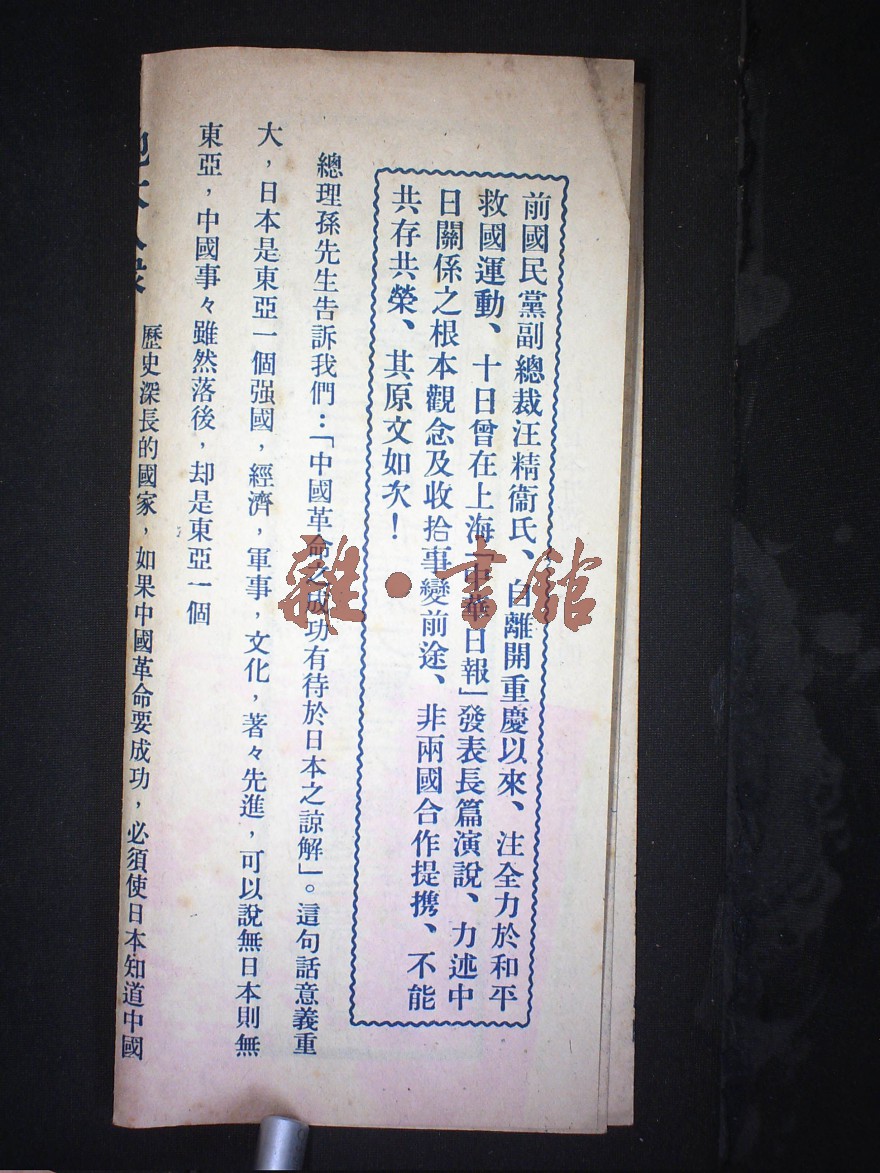 前國民黨副總裁汪精衞氏、自離開重慶以來、注全力於和平
救國運動、十日曾在上海「中華日報」發表長篇演說、力述中
日關係之根本觀念及收拾事變前途、非兩國合作提携、不能
共存共榮、其原文如次！
總理孫先生告訴我們：「中國革命之成功有待於日本之諒解」。這句話意義重
大，日本是東亞一個强國，經濟，軍事，文化，著々先進，可以說無日本則無
東亞，中國事々雖然落後，却是東亞一個
歷史深長的國家，如果中國革命要成功，必須使日本知道中國
雜·書館